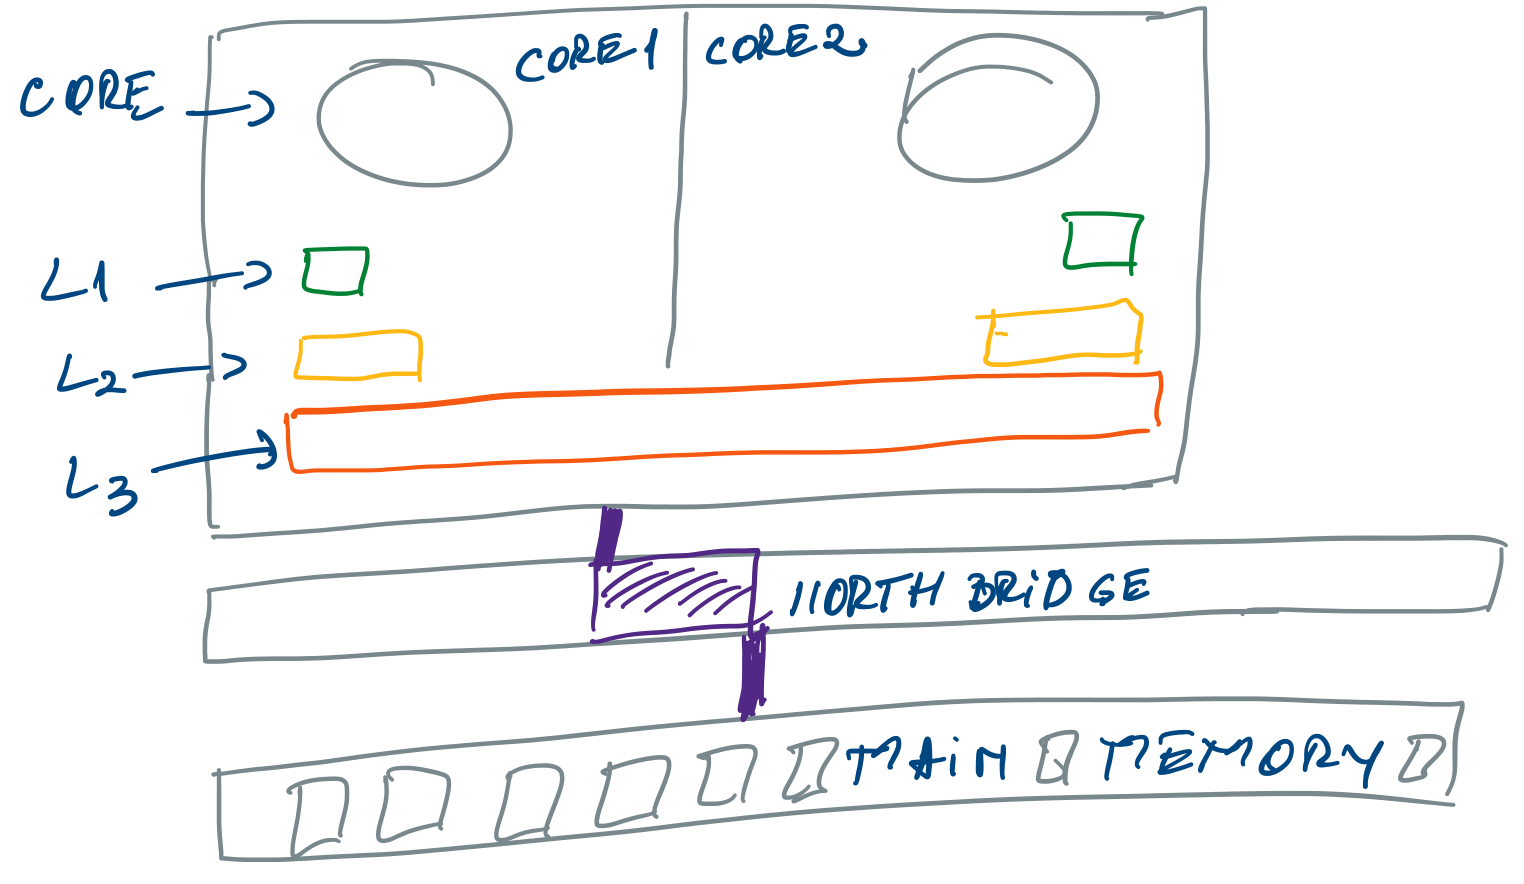 CORE 1
CORE 2
CORE
L1
L2
L3
NORTH BRIDGE
MAIN MEMORY